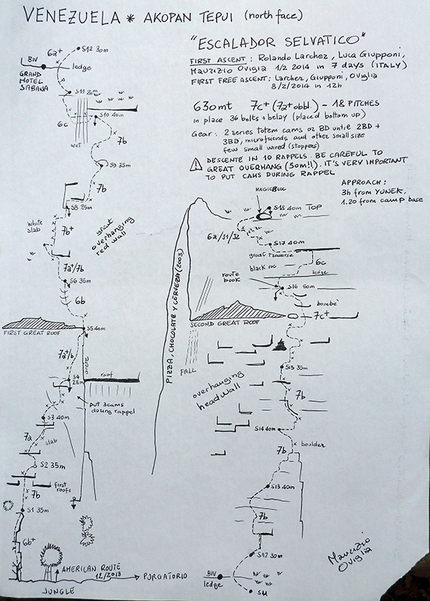 VENEZUELA * AKOPAN TEPUI (north face)
"ESCALADOR SELVATICO"
FIRST ASCENT: Rolando Larcher, Luca Giupponi,
Maurizio Oviglia 1/2 2014 in 7 days (ITALY)
FIRST FREE ASCENT: Larcher, Giupponi, Oviglia
8/2/2014 in 12h
630mt 7c+ (7a+obbl.) - 18 PITCHES
in place 36 bolts + belay (placed bottom up)
Gear: 2 series Totem cams or BD until 2BD +
3BD, microfriends and other small size
few small wired (stoppers)
DESCENTE IN 10 RAPPELS. BE CAREFUL TO
GREAT OVERHANG (50m!!). IT'S VERY IMPORTANT
TO PUT CAMS DURING RAPPEL
APPROACH:
3h from YUNEK.
1.20 from camp base
S12 30m
6a+
BIV
ledge
GRAND
HOTEL
SABANA
6c
wet
7b
white
slab
7b+
great
overhanging
red wall
7a+/7b
S6 35m
6b
FIRST GREAT ROOF
roof
put 3 cams
during rappel
S3 40m
7a
slab
S2 35m
7b
first
roofs
S1 35m
6b+
AMERICAN ROUTE
12/2013
PURGATORIO
JUNGLE
S18 40m TOP
S17 40m
great traverse
black roof
6c
ledge
route
book
S16 50m
7c+
SECOND GREAT ROOF
PIZZA, CHOCOLATE Y CERVEZA (2003)
FALL
S15 35m
overhanging
headwall
7b
S14 40m
boulder
7b
S13 40m
7b
S12 30m
BIV
ledge
S11
Maurizio
Oviglia